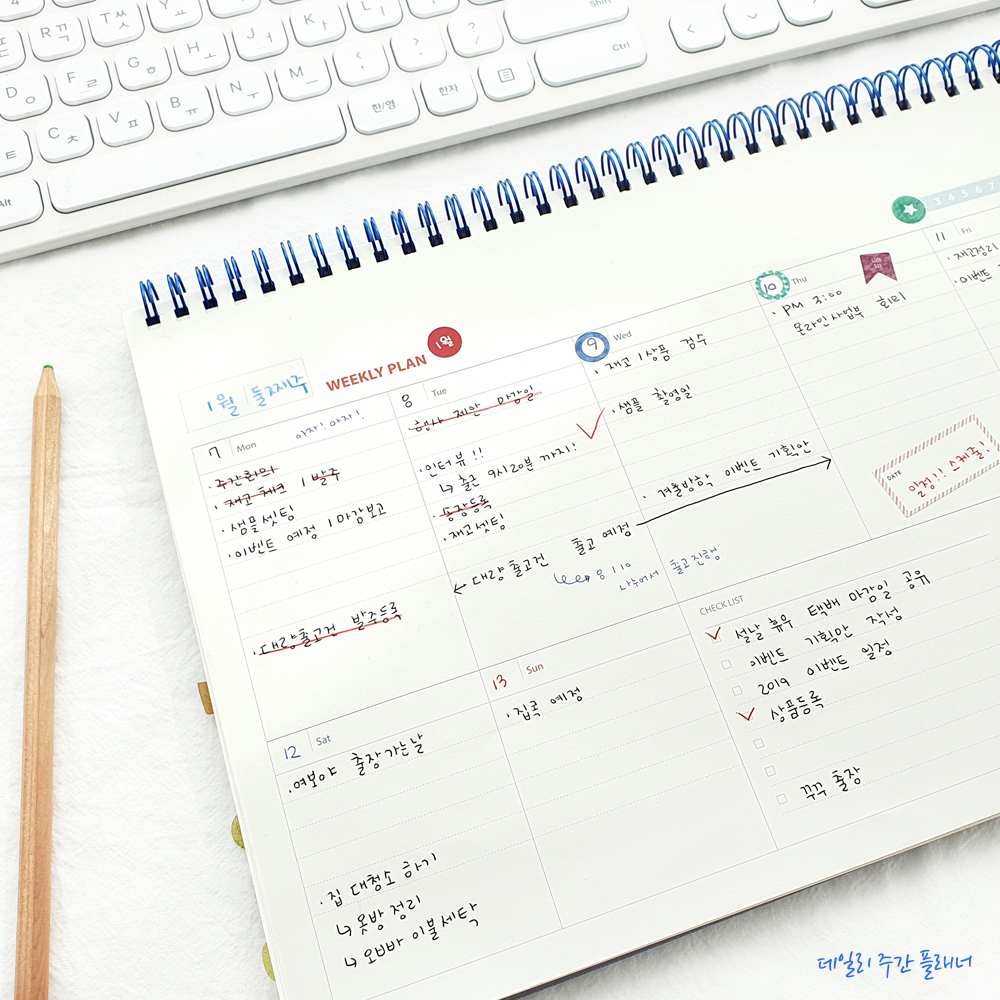 R ㄲ
T ㅆ
Y ㅛ
Shift
D ㅇ
F ㄹ
G ㅎ
H ㅗ
J ㅓ
K ㅏ
L ㅣ
Ctrl
C ㅊ
V ㅍ
B ㅠ
N ㅜ
M ㅡ
한/영
한자
Alt
3 4 5 6 7
1월 둘째주
WEEKLY PLAN
1월
7 Mon
아자! 아자!
· 주간회의
· 재고 체크 / 발주
· 샘플셋팅
· 이벤트 예정 / 마감보고
· 대량출고건 발주등록
8 Tue
· 행사 제안 마감일
· 인터뷰 !!
↳ 출근 9시20분 까지!
· 송장등록
· 재고셋팅
← 대량출고건 출고예정
8 / 10
나누어서 출고진행
9 Wed
· 재고 / 상품 검수
· 샘플 촬영일
· 겨울방학 이벤트 기획안
10 Thu
· PM 3:00
온라인사업부 회의
DATE
일정!! 스케줄!
11 Fri
· 재고정리
· 이벤트
12 Sat
· 여보야 출장가는날
· 집 대청소 하기
↳ 옷방 정리
↳ 오빠방 이불세탁
13 Sun
· 집콕 예정
CHECK LIST
설날 휴무 택배 마감일 공유
이벤트 기획안 작성
2019 이벤트 일정
상품등록
꾸꾸 출장
데일리 주간 플래너